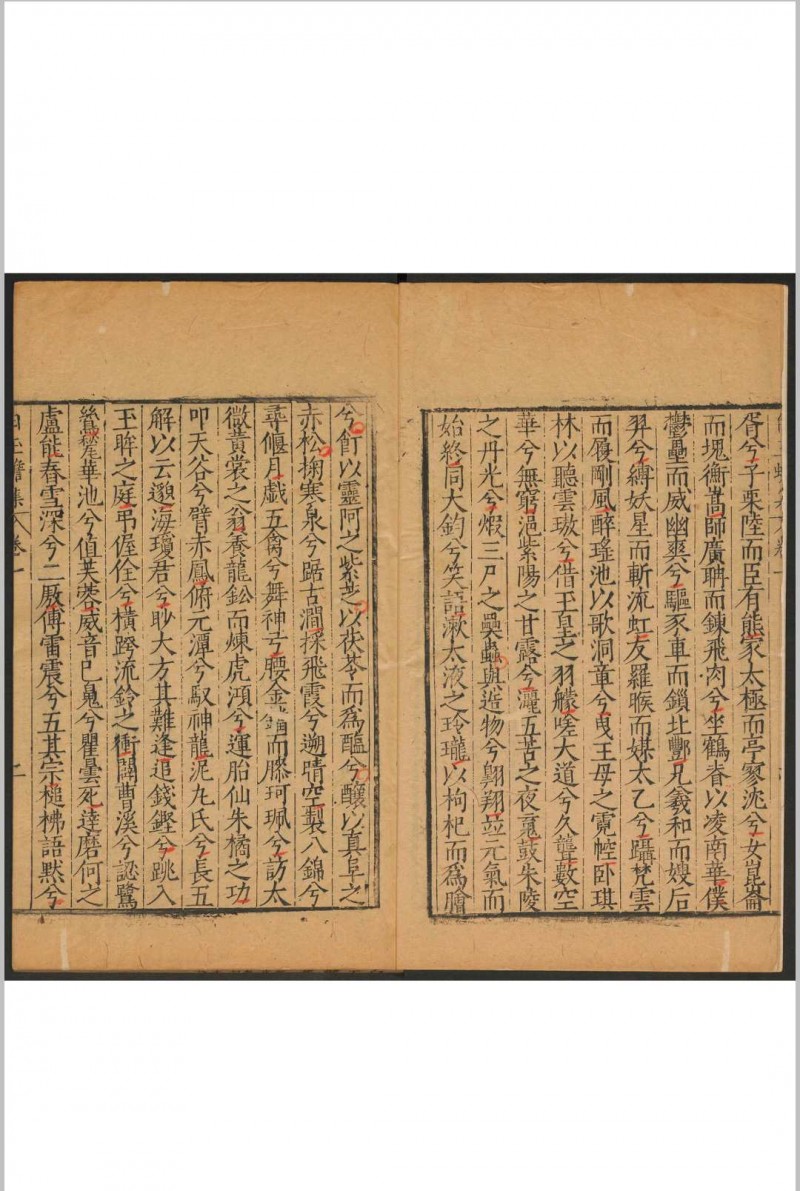 胥兮子栗陸而臣有熊家太極而亭寥泬兮女崑崙
而塊衡嵩師廣聃而鍊飛肉兮坐鶴脊以凌南華僕
鬱壘而威幽爽兮驅豕車而鎖北酆兄羲和而嫂后
羿兮縛妖星而斬流虹友羅睺而媒太乙兮躡梵雲
而履剛風醉瑤池以歌洞章兮曳王母之霓幢卧琪
林以聽雲璈兮借玉皇之羽艨嗟大道兮久聾數空
華兮無窮浥紫陽之甘露兮灑五苦之夜䰟鼓朱陵
之丹光兮煆三尸之㬥蟲與造物兮翺翔並元氣而
始終同大鈞兮笑語漱太液之玲瓏以枸杞而為膾
兮飣以靈阿之紫芝以茯苓而爲醢兮釀以真阜之
赤松掬寒泉兮踞古澗採飛霞兮遡晴空製八錦兮
尋偃月戲五禽兮舞神弓腰金鏞而縢珂珮兮訪太
微黃裳之翁養龍鈆而煉虎澒兮運胎仙朱橘之功
叩天谷兮臂赤鳳俯元潭兮馭神龍泥九氏兮長五
解以云邈海瓊君兮眇大方其難逢追錢鏗兮跳入
玉眸之庭弔偓佺兮橫跨流鈴之衝闢曹溪兮認鷺
鷥華池兮值芙蓉威音已䰟兮瞿曇死達磨何之
盧能舂雪深兮二厥傳雷震兮五其宗槌拂語默兮
卷一
二